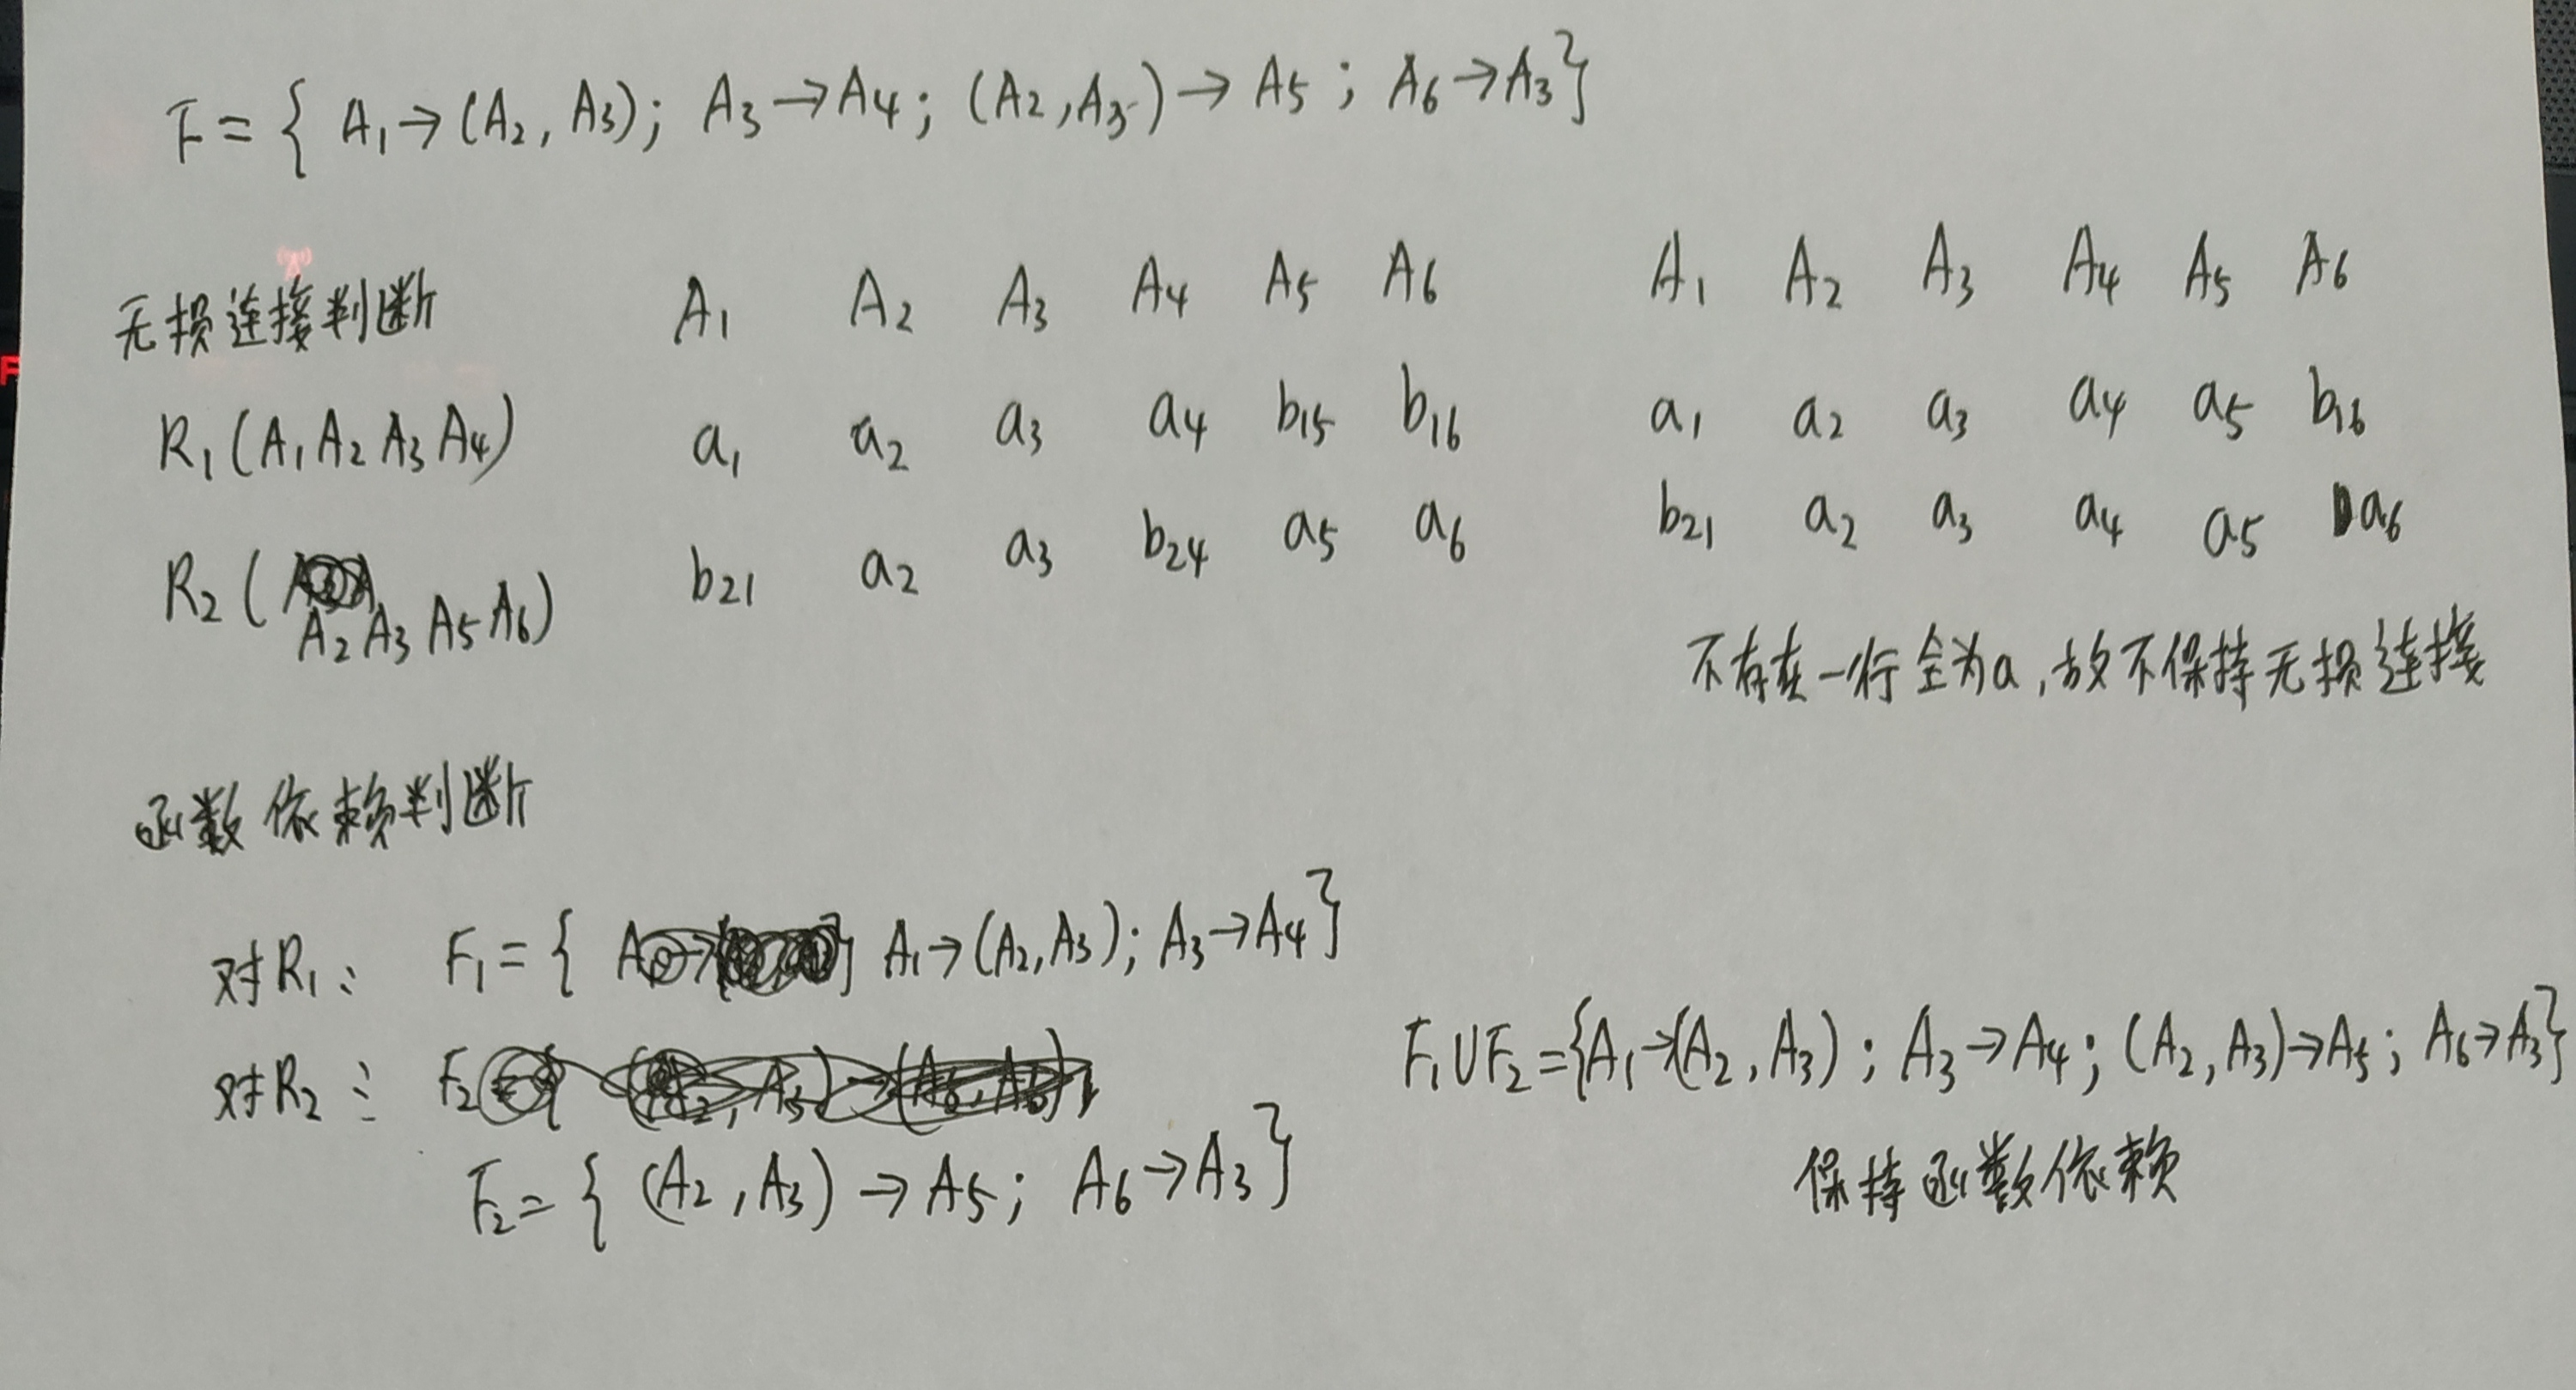 F = { A1→(A2, A3); A3→A4; (A2,A3)→A5; A6→A3}
无损连接判断 A1 A2 A3 A4 A5 A6 A1 A2 A3 A4 A5 A6
R1(A1A2A3A4) a1 a2 a3 a4 b15 b16 a1 a2 a3 a4 a5 b16
R2(A2A3A5A6) b21 a2 a3 b24 a5 a6 b21 a2 a3 a4 a5 a6
不存在一行全为a,故不保持无损连接
函数依赖判断
对R1: F1={ A1→(A2,A3); A3→A4}
对R2: F2
F2={ (A2,A3)→A5; A6→A3}
F1∪F2={A1→(A2,A3); A3→A4; (A2,A3)→A5; A6→A3}
保持函数依赖